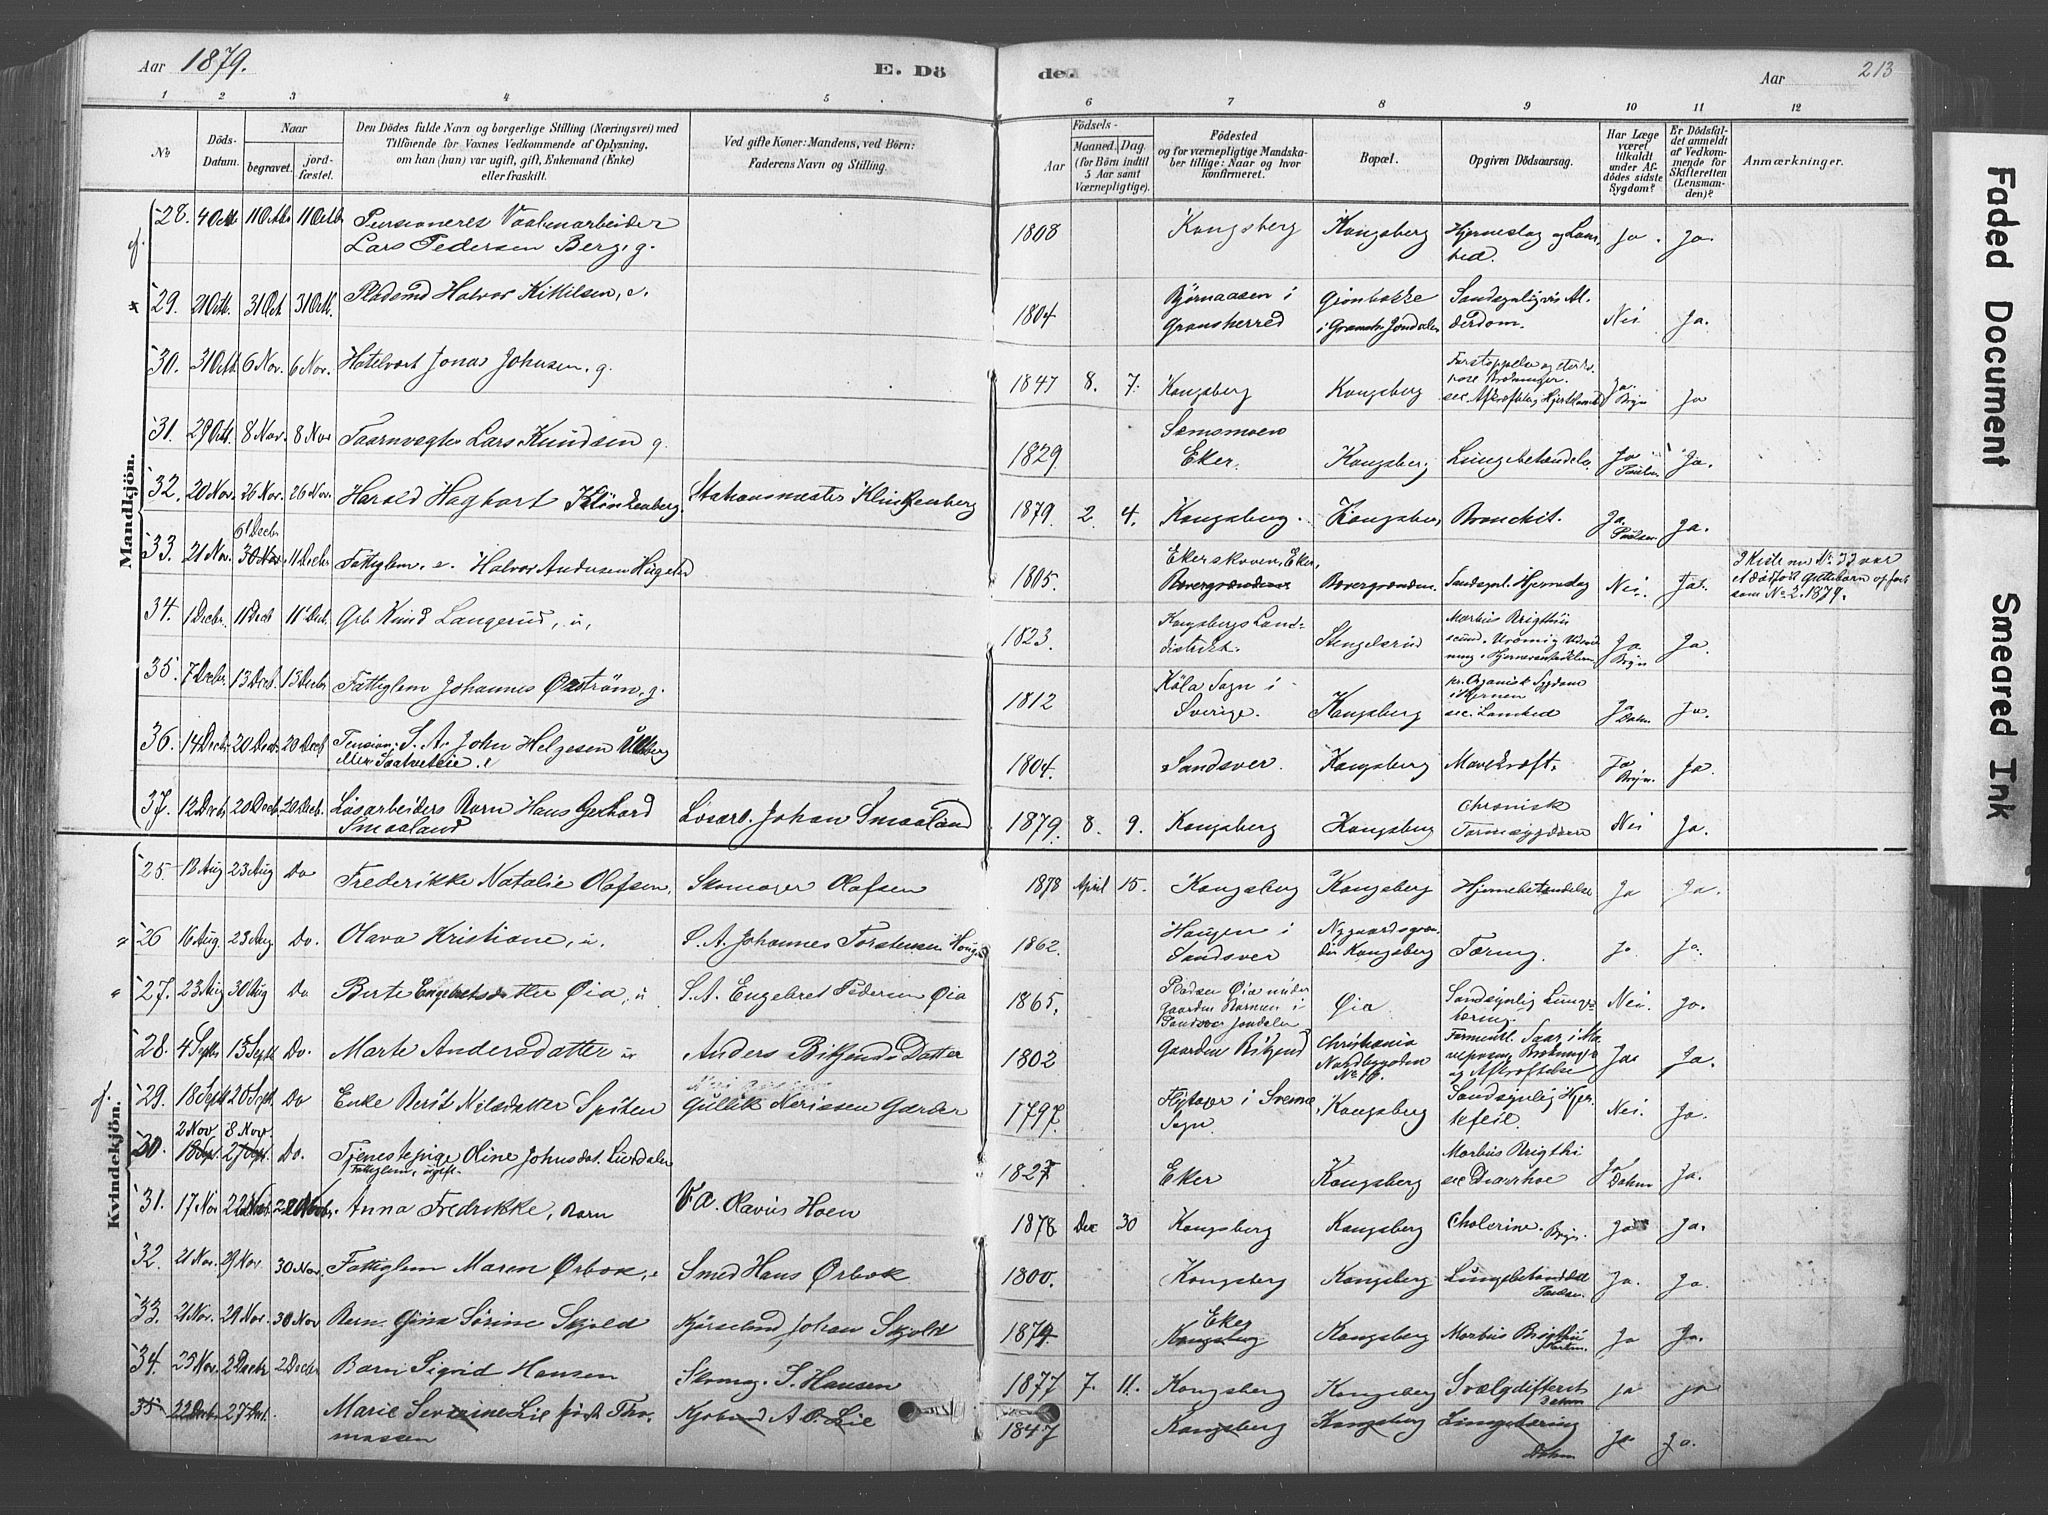 Aar 1879.
E. Dö
de.
Aar
213
1 2 3 4 5 6 7 8 9 10 11 12
No
Döds-
Datum.
Naar
begravet.
jord-
fæstet.
Den Dödes fulde Navn og borgerlige Stilling (Næringsvei) med
Tilföiende for Voxnes Vedkommende af Oplysning,
om han (hun) var ugift, gift, Enkemand (Enke)
eller fraskilt.
Ved gifte Koner: Mandens, ved Börn:
Faderens Navn og Stilling.
Födsels-
Aar
Maaned. Dag.
(for Börn indtil
5 Aar samt
Værnepligtige).
Födested
og for værnepligtige Mandska-
ber tillige: Naar og hvor
konfirmeret.
Bopæl.
Opgiven Dödsaarsag.
Har Læge
været
tilkaldt
under Af-
dödes sidste
Sygdom?
Er Dödsfal-
det anmeldt
af Vedkom-
mende for
Skifteretten
(Lensman-
den)?
Anmærkninger.
Mandkjön.
28. 4 Octb 11 Octb 11 Octb Pensioneret Vaabenarbeider
Lars Pedersen Berg, g. 1808 Kongsberg Kongsberg Hjerneslag og Lam-
hed. Ja. Ja.
29. 21 Octb. 31 Oct 31 Octb. Pladsmd Halvor Kittilsen, e. 1804 Bjørnaasen i
Gransherred Grønbække
i Gransh. Jondalen Sandsynligvis Al-
derdom. Nei Ja.
30. 31 Octb 6 Nov. 6 Nov. Hotelvært Jonas Johnsen, g. 1847 8. 7. Kongsberg Kongsberg Forstoppelse og
sec. Ja. Ja
31. 29 Octb. 8 Nov. 8 Nov Taarnvægter Lars Knudsen g. 1829 Semsmoen
Eker. Kongsberg Lungebetændelse Ja
Paulsen Ja.
32. 20 Nov. 26 Nov. 26 Nov. Harald Hagbart Klinkenberg. Stationsmester Klinkenberg 1879. 2. 4. Kongsberg. Kongsberg Bronchit. Ja,
Paulsen. Ja.
6 Decbr
33. 21 Nov. 30 Nov. 11 Decbr Fattiglem, e. Halvor Andersen 1805. Ekerskoven, Eker,
Bævergrænden Bævergrænden Sandsynl. Hjerneslag Nei. Ja. I Kiste med No 33 var
et dødfødt Guttebarn opført
som No 2. 1879.
34. 1 Decbr. 11 Decb 11 Decb. Grb Knud Langerud, u, 1823. Kongsbergs Land-
distrikt. Stengelsrud Morbus Brigthii
secund. Uræmi Ja. Ja.
35. 7 Decbr. 13 Decb. 13 Decbr Fattiglem Johannes Østrøm, g. 1812 Köla Sogn i
Sverige. Kongsberg pr. Organisk Sygdom
i Hjernen
sec. Lamhed Ja
Dahm. Ja.
36. 14 Decbr 20 Decb. 20 Decb Pension. S. A. John Helgesen
1804. Sandsver. Kongsberg Mavekræft. Ja Ja.
37. 12 Decbr 20 Decb 20 Decb. Løsarbeiders Barn Hans Gerhard
Smaaland Løsarb. Johan Smaaland 1879. 8. 9. Kongsberg Kongsberg Chronisk
Tarmsygdom Nei Ja.
Kvindekjön.
25. 18 Aug 23 Aug Do Frederikke Natalie Olafsen, Skomager Olafsen 1878 April 15. Kongsberg Kongsberg Hjernebetændelse Ja Ja.
26 16 Aug. 23 Aug Do. Olava Kristiane, u. S. A. Johannes Torstensen Haugen 1862. Haugen i
Sandsver Nygaardsgræn-
den Kongsberg Tæring. Ja Ja.
27. 23 Aug 30 Aug Do Berte Engebretsdatter Øia, u S. A. Engebret Pedersen Øia 1865. Pladsen Øia under
Gaarden Barmen i
Sandsver Jondalen Øia Sandsynlig Lunge-
tæring. Nei. Ja.
28. 4 Septb 13 Septb Do. Marte Andersdatter u Anders Bikjends Datter 1802 Gaarden Bikjend Christiania
Nordbygaden
No 16.
og Afkræftelse Ja Ja.
29. 18 Septb 20 Septb. Do Enke Berit Nilsdatter Spiten Gullik Nerisen Gærber 1797. Flytaver i Svene
Sogn. Kongsberg Sandsynlig Hjer-
tefeil. Nei. Ja.
2 Nov 8 Nov.
30. 18 Spt. 27 Spt. Do. Tjenestepige Oline Johnsdat. Liverdalen
Fattiglem, ugift. 1827 Eker Kongsberg Morbus Brigthi
sec Diarrhoe Ja
Dahm Ja.
31. 17 Nov 22 Nov. 22 Novb. Anna Fredrikke, Barn V. A. Olavus Hoen 1878 Dec 30 Kongsberg Kongsberg Cholerine. Ja Ja.
32. 21 Nov. 29 Nov. 30 Nov. Fattiglem Maren Ørbok, e Smed Hans Ørbok 1800. Kongsberg Kongsberg Lungebetændelse
Paulsen. Ja. Ja.
33. 21 Nov. 29 Nov. 30 Nov Barn Gina Sørine Skjold Kjørselsmd Johan Skjold 1874. Eker
Kongsberg Kongsberg Morbus Brigthii Ja Ja.
34. 25 Nov. 2 Decbr 2 Decbr Barn Sigrid Hansen Skomag. S. Hansen 1877 7. 11. Kongsberg Kongsberg Svælgdifterit
Dahm Ja Ja
35 22 Decbr 27 Dcb. Marie Severine Lie født Tho-
massen Kjøbmd A. O. Lie 1847 Kongsberg Kongsberg Lungetæring
Dahm Ja. Ja.
Faded Document
Smeared Ink